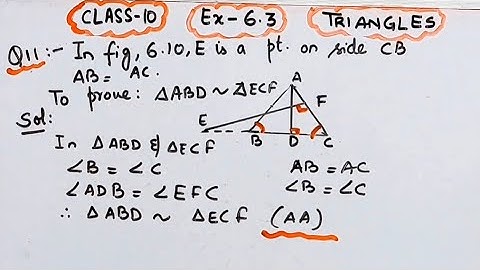 CLASS-10 Ex-6.3 TRIANGLES
Q11:- In fig, 6.10, E is a pt. on side CB
AB = AC.
To prove: △ABD ~ △ECF
Sol:
A
F
E
B D C
In △ABD & △ECF
∠B = ∠C
∠ADB = ∠EFC
∴ △ABD ~ △ECF (AA)
AB = AC
∠B = ∠C